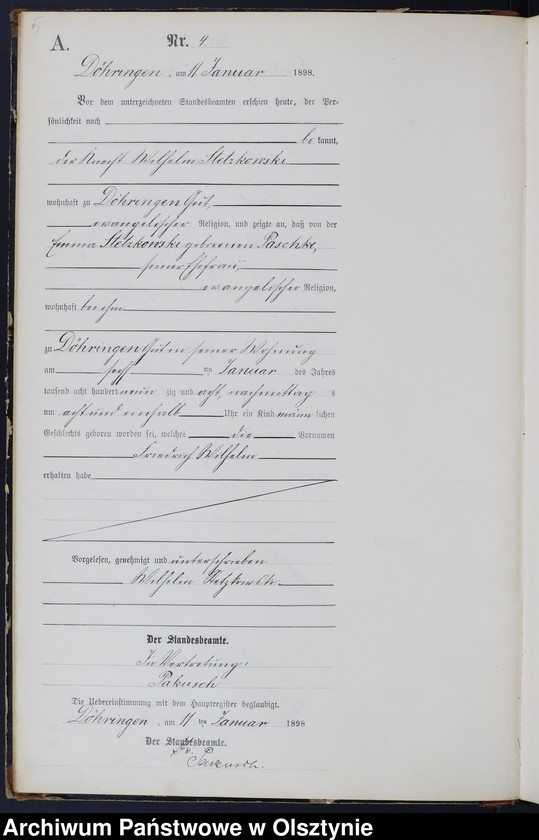 5
A.
Nr. 4
Döhringen, am 11 Januar 1898.
Vor dem unterzeichneten Standesbeamten erschien heute, der Per-
sönlichkeit nach
be kannt,
der Knecht Wilhelm Stetzkowski
wohnhaft zu Döhringen Gut,
evangelischer Religion, und zeigte an, daß von der
Emma Stetzkowski geborenen Paschke,
seiner Ehefrau,
evangelischer Religion,
wohnhaft bei ihm
zu Döhringen Gut in seiner Wohnung
am sechs ten Januar des Jahres
tausend acht hundert neun zig und acht, nachmittag s
um acht und einhalb Uhr ein Kind männ lichen
Geschlechts geboren worden sei, welches die Vornamen
Friedrich Wilhelm
erhalten habe
Vorgelesen, genehmigt und unterschrieben
Wilhelm Stetzkowski
Der Standesbeamte.
In Vertretung:
Pakusch
Die Uebereinstimmung mit dem Hauptregister beglaubigt.
Döhringen, am 11 ten Januar 1898
Der Standesbeamte.
Pakusch.
Archiwum Państwowe w Olsztynie